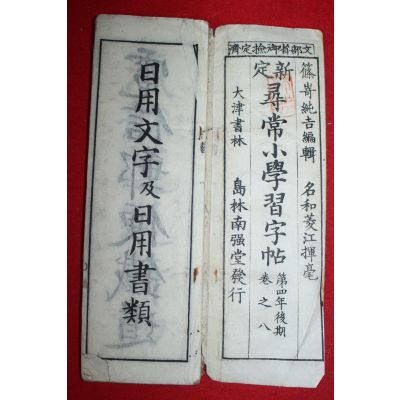 文部省御檢定濟
篠嵜純吉編輯　名和菱江揮毫
新定 尋常小學習字帖 第四年後期 卷之八
大津書林　島林南强堂發行
日用文字及日用書類